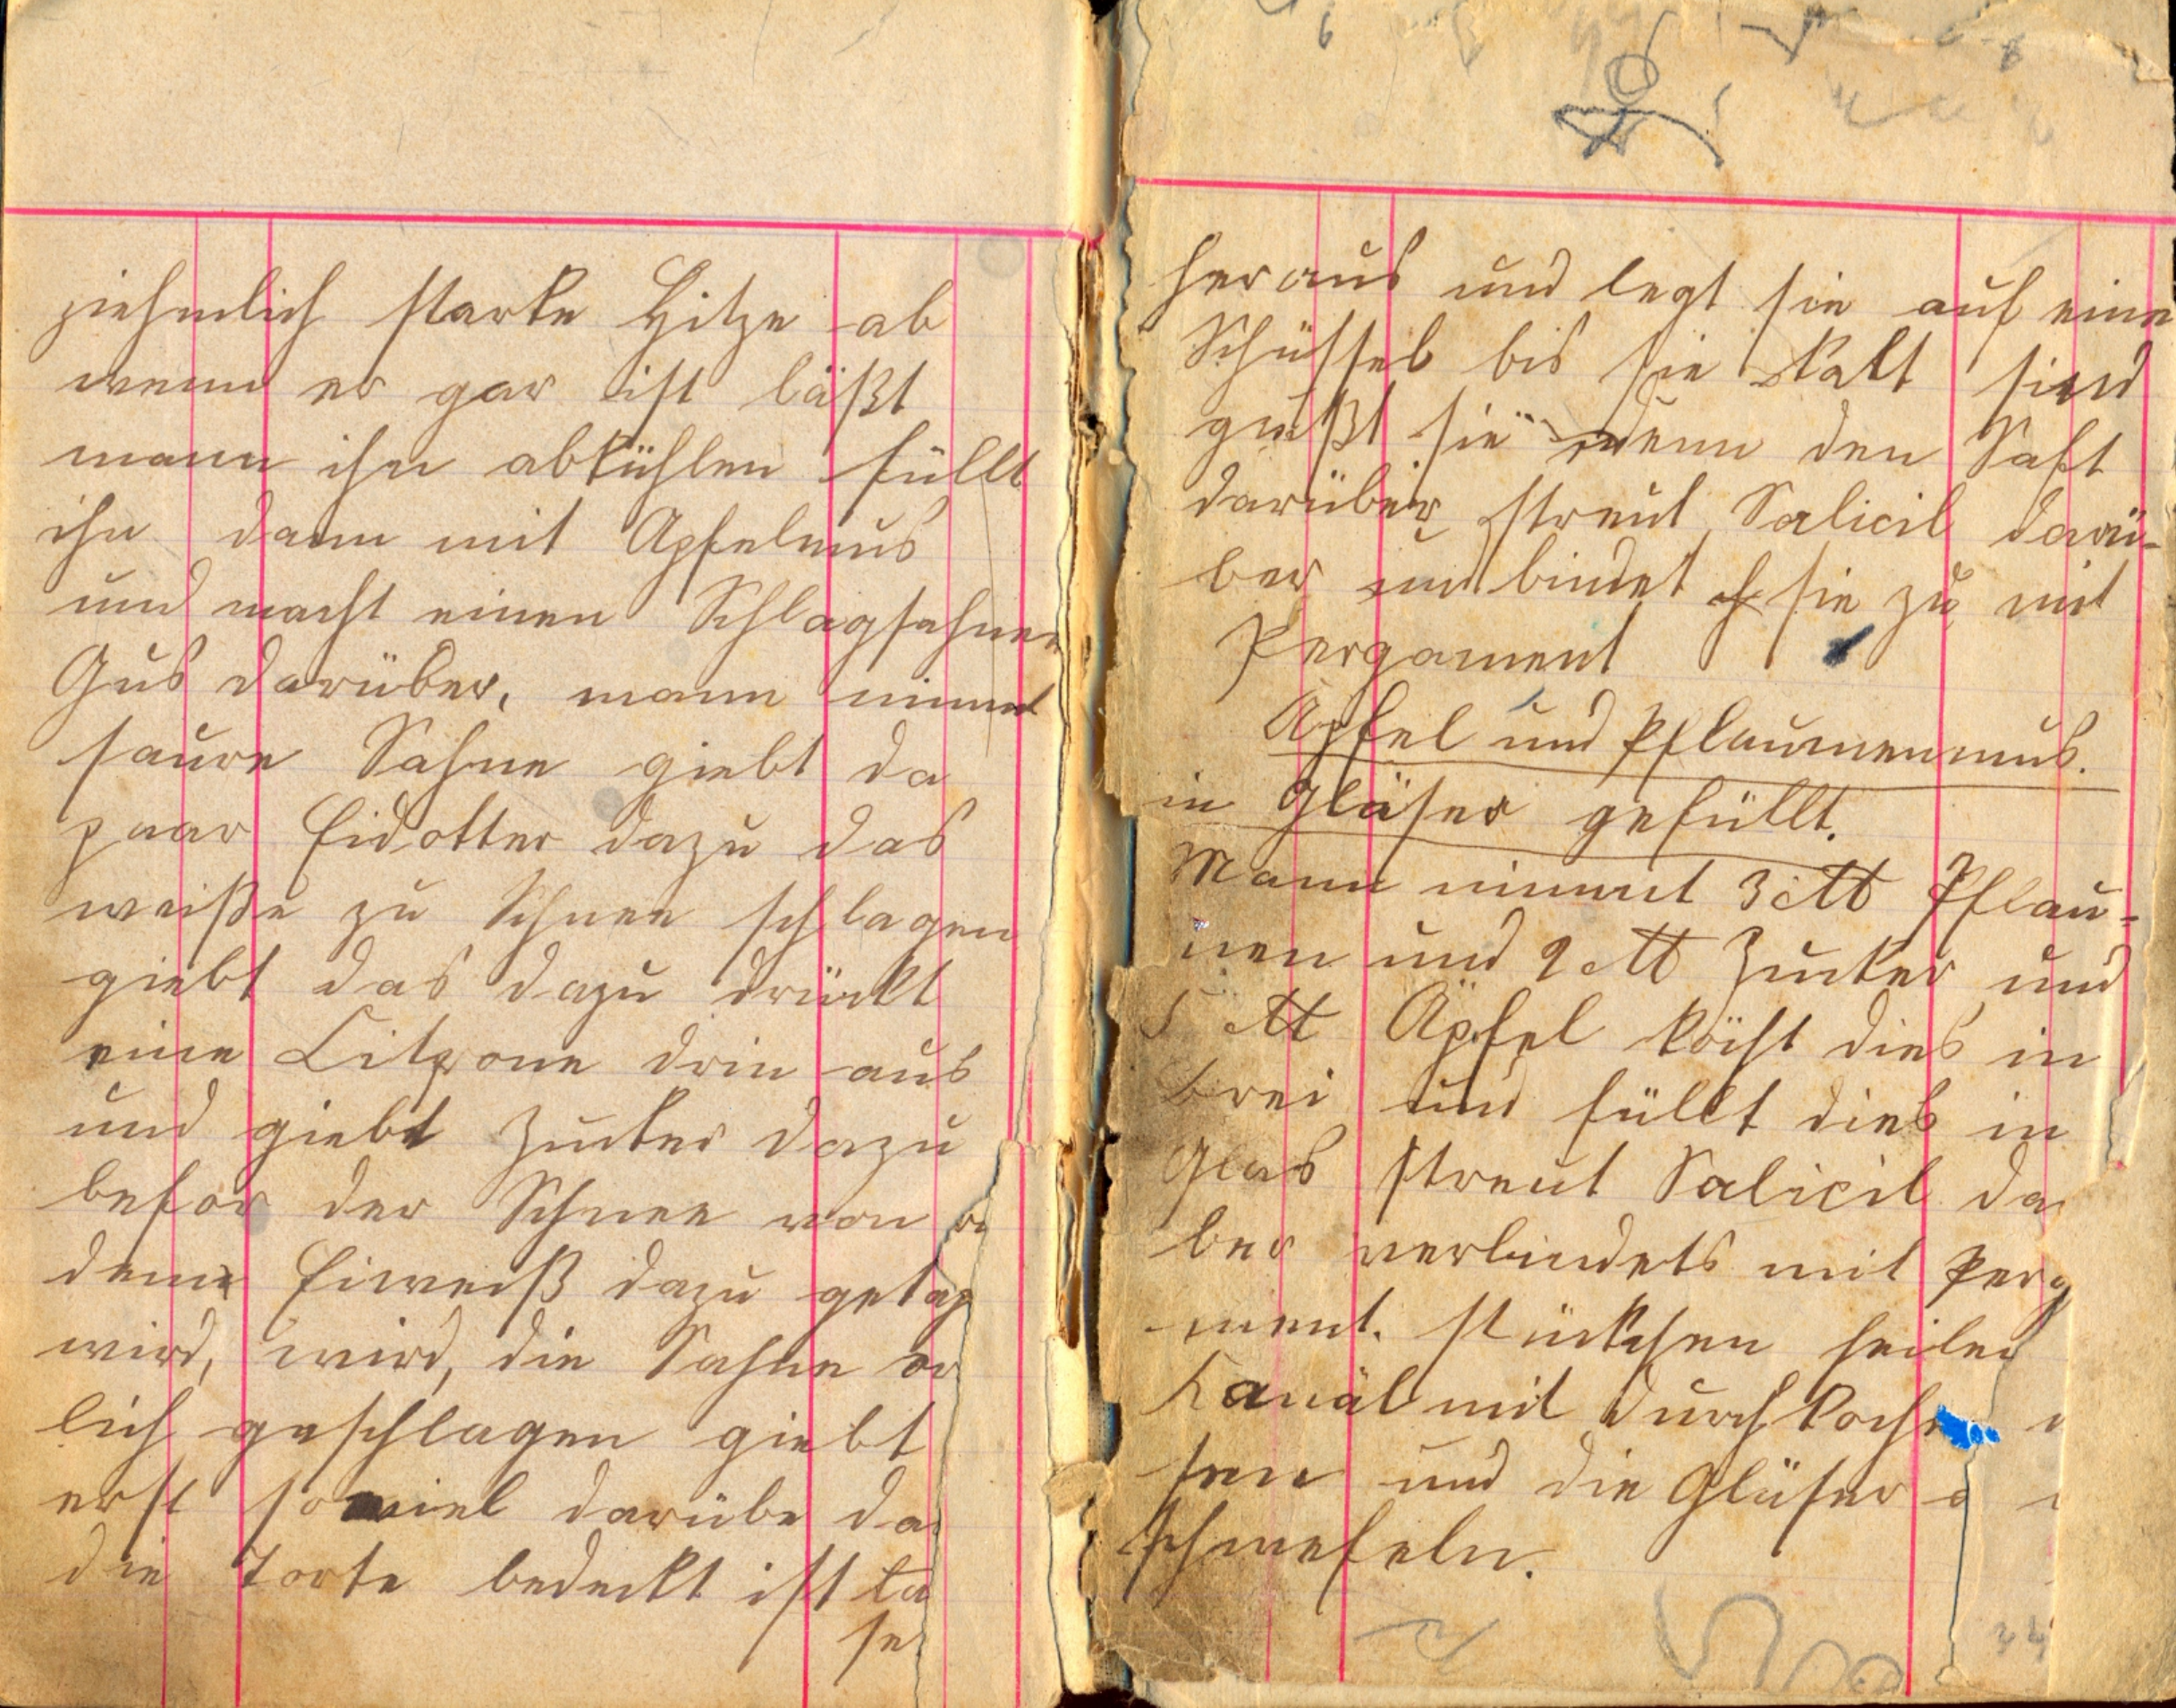 ziehmlich starke Hitze ab
wenn er gar ist läßt
mann ihn abkühlen füllt
ihn dann mit Apfelmus
und macht einen Schlagsahnen
Gus darüber, mann nimmt
saure Sahne giebt da
paar Eidotter dazu das
weiße zu Schnee schlagen
giebt das dazu drückt
eine Citrone drin aus
und giebt Zucker dazu
befor der Schnee von
dem Eiweiß dazu getan
wird, wird, die Sahne
lich geschlagen giebt
erst soviel darübe da
die Torte bedeckt ist
heraus und legt sie auf eine
Schüssel bis sie kalt sind
gußt sie denn den Saft
darüber streut Salicil darü-
ber und bindet sie zu mit
Pergament
Apfel und Pflaumenmus.
in Gläser gefüllt.
Mann nimmt 3 ℔ Pflau-
men und 2 ℔ Zucker und
5 ℔ Äpfel köcht dies in
Brei und füllt dies in
Glas streut Salicil da
ber verbindets mit Perg
ment. Stückchen heilen
Kanäl mit durchkoche
sen und die Gläser
schwefeln.